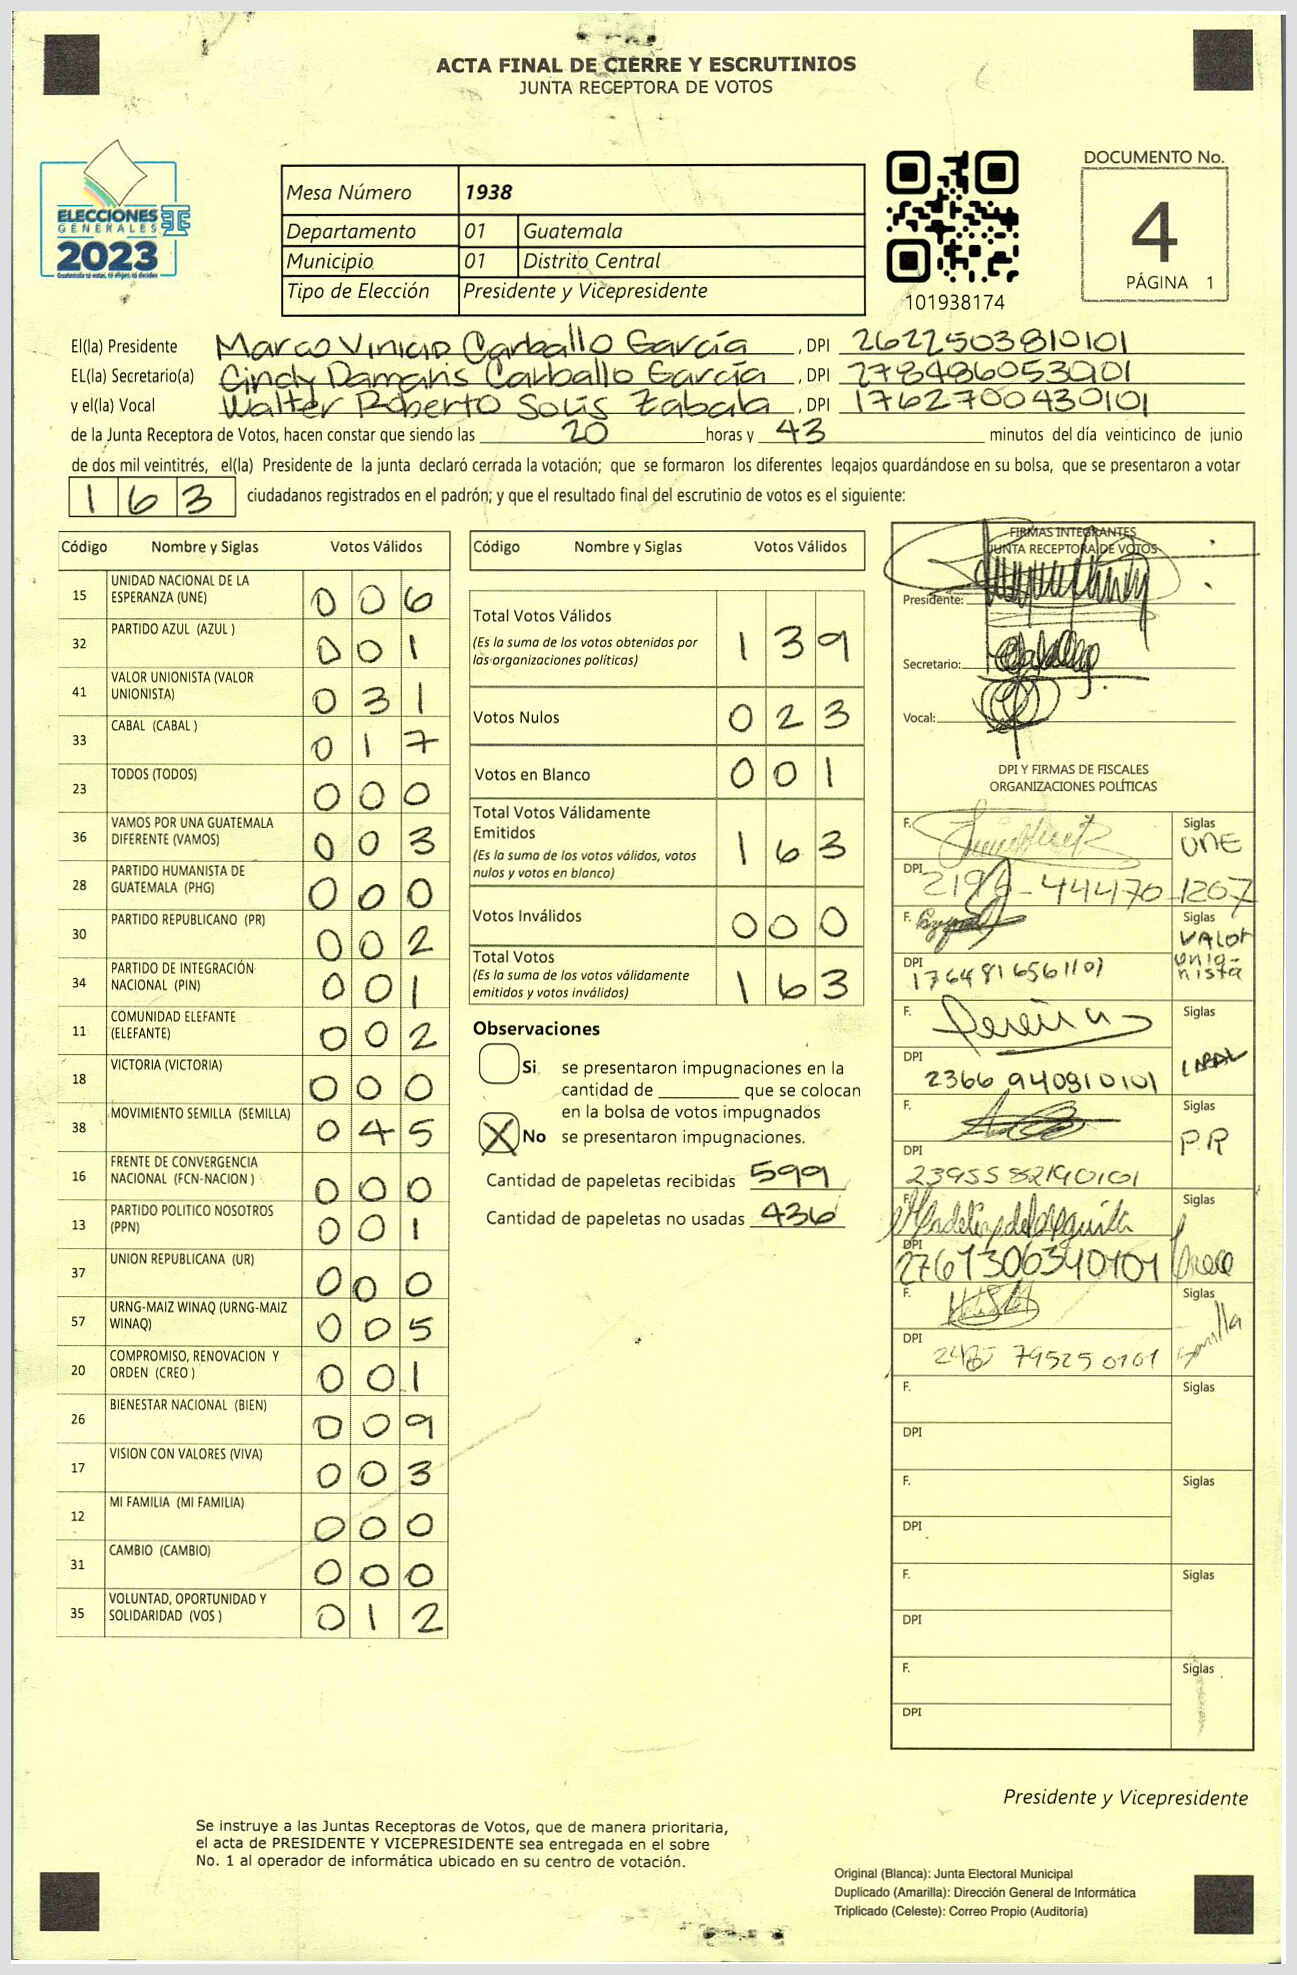 ACTA FINAL DE CIERRE Y ESCRUTINIOS
JUNTA RECEPTORA DE VOTOS
ELECCIONES
GENERALES
2023
Mesa Número 1938
Departamento 01 Guatemala
Municipio 01 Distrito Central
Tipo de Elección Presidente y Vicepresidente
101938174
DOCUMENTO No.
4
PÁGINA 1
El(la) Presidente Marco Vinicio Carballo García, DPI 2622503810101
EL(la) Secretario(a) Cindy Damaris Carballo García, DPI 2784860530901
y el(la) Vocal Walter Roberto Solis Zabala, DPI 1762700430101
de la Junta Receptora de Votos, hacen constar que siendo las 20 horas y 43 minutos del día veinticinco de junio
de dos mil veintitrés, el(la) Presidente de la junta declaró cerrada la votación; que se formaron los diferentes legajos guardándose en su bolsa, que se presentaron a votar
163 ciudadanos registrados en el padrón; y que el resultado final del escrutinio de votos es el siguiente:
Código Nombre y Siglas Votos Válidos
15 UNIDAD NACIONAL DE LA ESPERANZA (UNE) 006
32 PARTIDO AZUL (AZUL ) 001
41 VALOR UNIONISTA (VALOR UNIONISTA) 031
33 CABAL (CABAL ) 017
23 TODOS (TODOS) 000
36 VAMOS POR UNA GUATEMALA DIFERENTE (VAMOS) 003
28 PARTIDO HUMANISTA DE GUATEMALA (PHG) 000
30 PARTIDO REPUBLICANO (PR) 002
34 PARTIDO DE INTEGRACIÓN NACIONAL (PIN) 001
11 COMUNIDAD ELEFANTE (ELEFANTE) 002
18 VICTORIA (VICTORIA) 000
38 MOVIMIENTO SEMILLA (SEMILLA) 045
16 FRENTE DE CONVERGENCIA NACIONAL (FCN-NACION ) 000
13 PARTIDO POLITICO NOSOTROS (PPN) 001
37 UNION REPUBLICANA (UR) 000
57 URNG-MAIZ WINAQ (URNG-MAIZ WINAQ) 005
20 COMPROMISO, RENOVACION Y ORDEN (CREO ) 001
26 BIENESTAR NACIONAL (BIEN) 009
17 VISION CON VALORES (VIVA) 003
12 MI FAMILIA (MI FAMILIA) 000
31 CAMBIO (CAMBIO) 000
35 VOLUNTAD, OPORTUNIDAD Y SOLIDARIDAD (VOS ) 012
Código Nombre y Siglas Votos Válidos
Total Votos Válidos 139
(Es la suma de los votos obtenidos por
las organizaciones políticas)
Votos Nulos 023
Votos en Blanco 001
Total Votos Válidamente
Emitidos 163
(Es la suma de los votos válidos, votos
nulos y votos en blanco)
Votos Inválidos 000
Total Votos 163
(Es la suma de los votos válidamente
emitidos y votos inválidos)
Observaciones
Si se presentaron impugnaciones en la
cantidad de ________ que se colocan
en la bolsa de votos impugnados
X No se presentaron impugnaciones.
Cantidad de papeletas recibidas 599
Cantidad de papeletas no usadas 436
FIRMAS INTEGRANTES
JUNTA RECEPTORA DE VOTOS
Presidente:
Secretario:
Vocal:
DPI Y FIRMAS DE FISCALES
ORGANIZACIONES POLÍTICAS
F. Siglas UNE
DPI
F. Siglas Valor Unionista
DPI 1764816561101
F. Siglas CABAL
DPI 2366940910101
F. Siglas PR
DPI 2395582190101
F. Siglas
DPI 2761306340101
F. Siglas Semilla
DPI
F. Siglas
DPI
F. Siglas
DPI
F. Siglas
DPI
F. Siglas
DPI
Presidente y Vicepresidente
Se instruye a las Juntas Receptoras de Votos, que de manera prioritaria,
el acta de PRESIDENTE Y VICEPRESIDENTE sea entregada en el sobre
No. 1 al operador de informática ubicado en su centro de votación.
Original (Blanca): Junta Electoral Municipal
Duplicado (Amarilla): Dirección General de Informática
Triplicado (Celeste): Correo Propio (Auditoría)